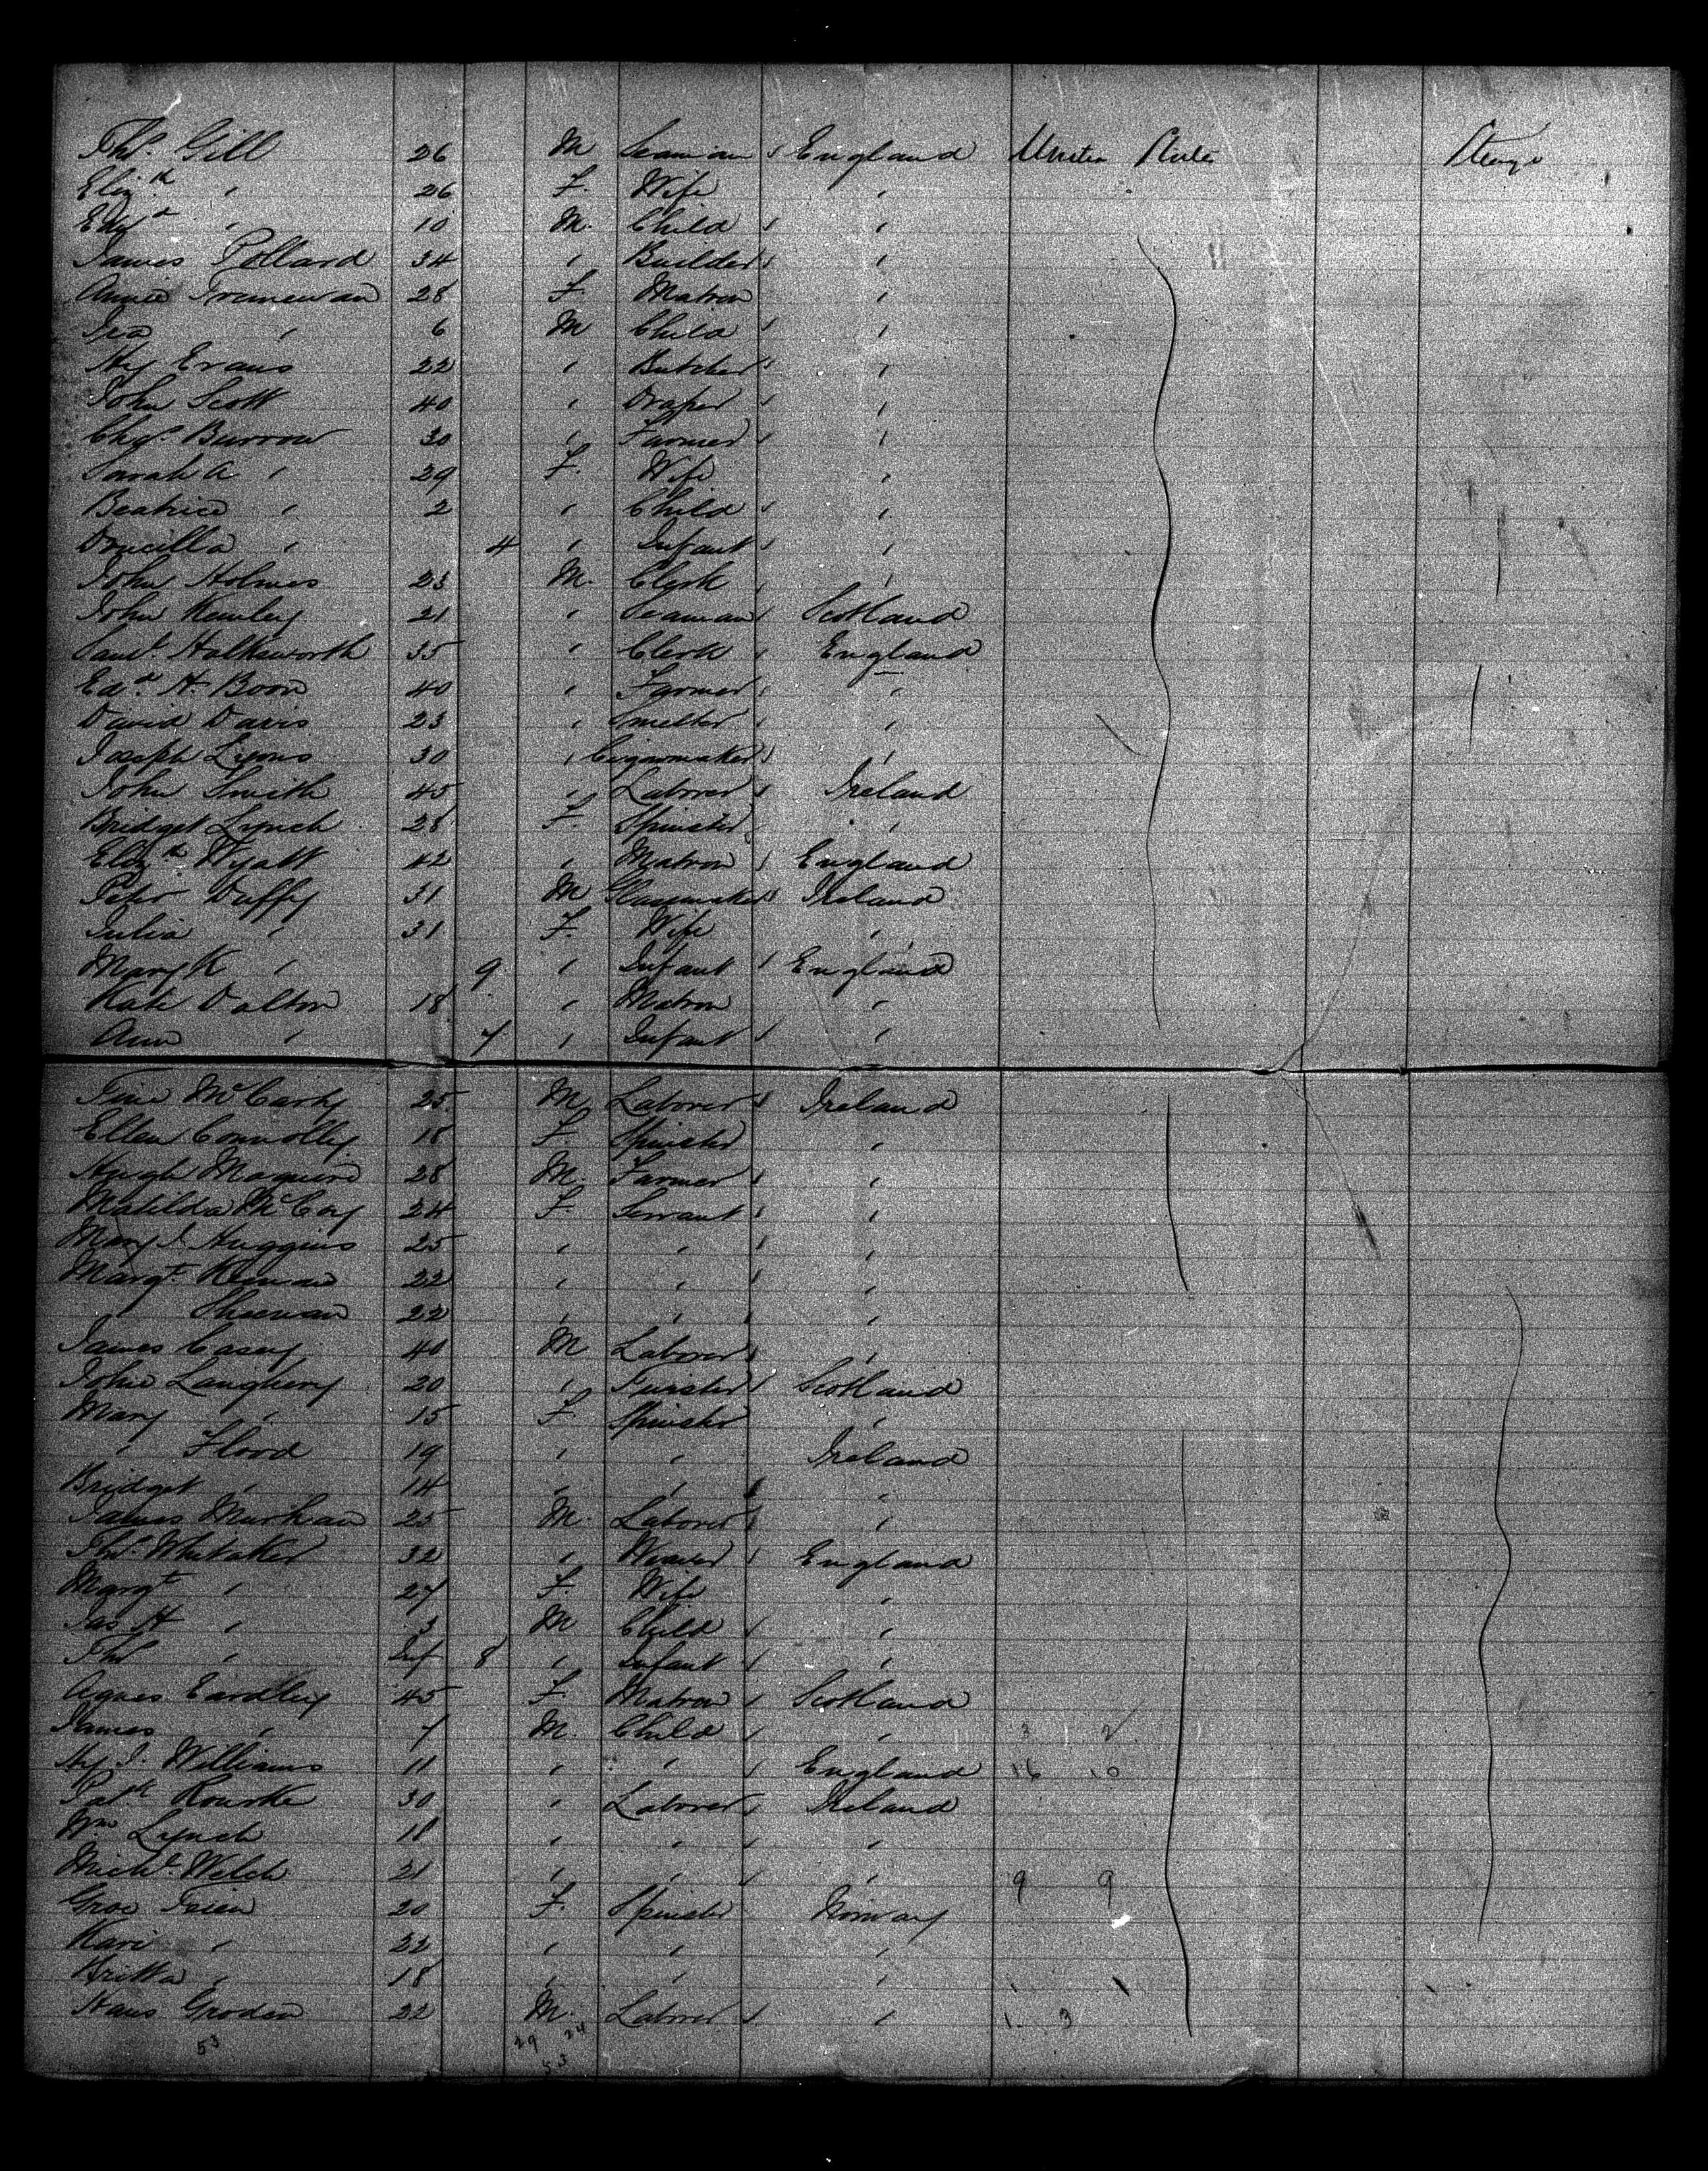 Thos. Gill 26 M Seaman England United States Steerage
Elizth " 26 F. Wife "
Edwd " 10 M. Child "
James Pollard 34 " Builder "
Annie Tremewan 28 F. Matron "
Ira " 6 M Child "
Hy Evans 22 " Butcher "
John Scott 40 " Draper "
Chas. Burrow 30 " Farmer "
Sarah A " 29 F. Wife "
Beatrice " 2 " Child "
Drucilla " 4 " Infant "
John Holmes 23 M. Clerk "
John Kewley 21 " Seaman Scotland
Saml. Holdsworth 35 " Clerk England
Edwd. H. Boon 40 " Farmer "
David Davis 23 " Smelter "
Joseph Lyons 30 " Cigarmaker "
John Smith 45 " Laborer Ireland
Bridget Lynch 28 F. Spinster "
Elizth Wyatt 42 " Matron England
Peter Duffy 31 M Glassmaker Ireland
Julia " 31 F. Wife "
Mary K " 9 " Infant England
Kate Dalton 18 " Matron "
Ann " 7 " Infant "
McCarthy 25 M Laborer Ireland
Ellen Connolly 18 F. Spinster "
Hugh Maguire 28 M. Farmer "
Matilda McCoy 24 F. Servant "
Mary J. Huggins 25 " " "
Margt. Kiernan 22 " " "
" Sheeran 22 " " "
James Casey 40 M Laborer "
John Langherry 20 " Scotland
Mary " 15 F. Spinster "
" Flood 19 " " Ireland
Bridget " 14 " " "
James Murhean 25 M. Laborer "
Thos. Whitaker 32 " Weaver England
Margt " 27 F. Wife "
Jas H " 3 M Child "
Thos " Inf 8 " Infant "
Agnes Eardley 45 F Matron Scotland
James " 7 M. Child " 3 1 2
Hy J. Williams 11 " " England 16 10
Patk. Rourke 30 " Laborer Ireland
Wm Lynch 18 " " "
Michl. Welch 21 " " " 9 9
Groe 20 F. Spinster Norway
Kari " 22 " " "
Britta " 18 " " "
Hans Groden 22 M. Laborer " 1 3
53 29 24
53